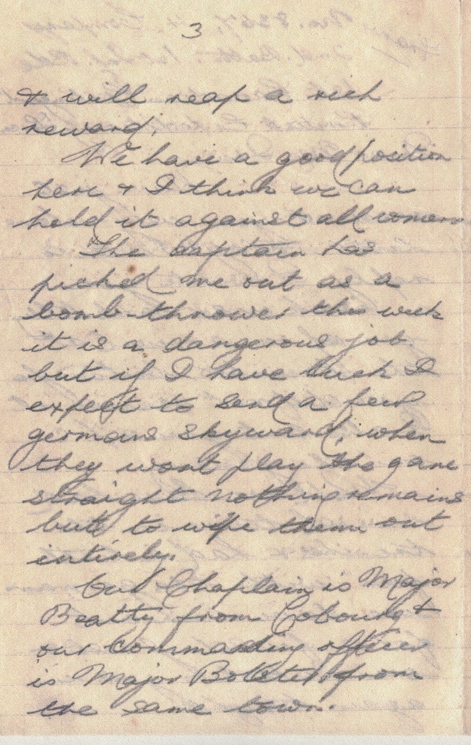 3
& will reap a rich
reward.
We have a good position
here & I think we can
hold it against all comers
The captain has
picked me out as a
bomb-thrower this week
it is a dangerous job.
but if I have luck I
expect to send a few
germans skyward, when
they wont play the game
straight nothing remains
but to wipe them out
entirely.
Our Chaplain is Major
Beatty from Cobourg &
our commanding officer
is Major Bolster from
the same town.